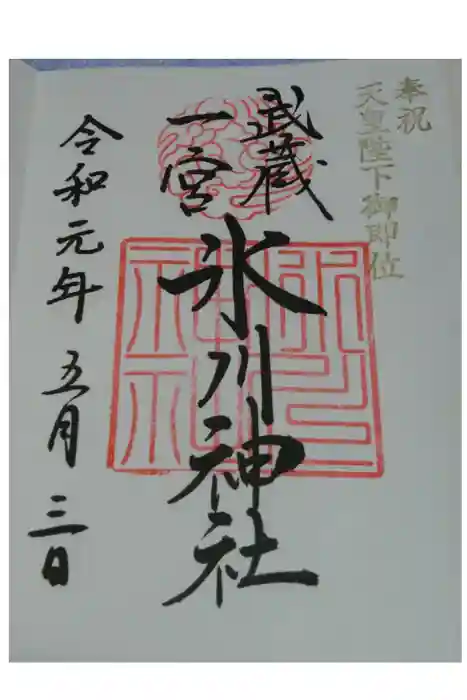 奉祝
天皇陛下御即位
武蔵
一宮
氷川神社
令和元年 五月 三日